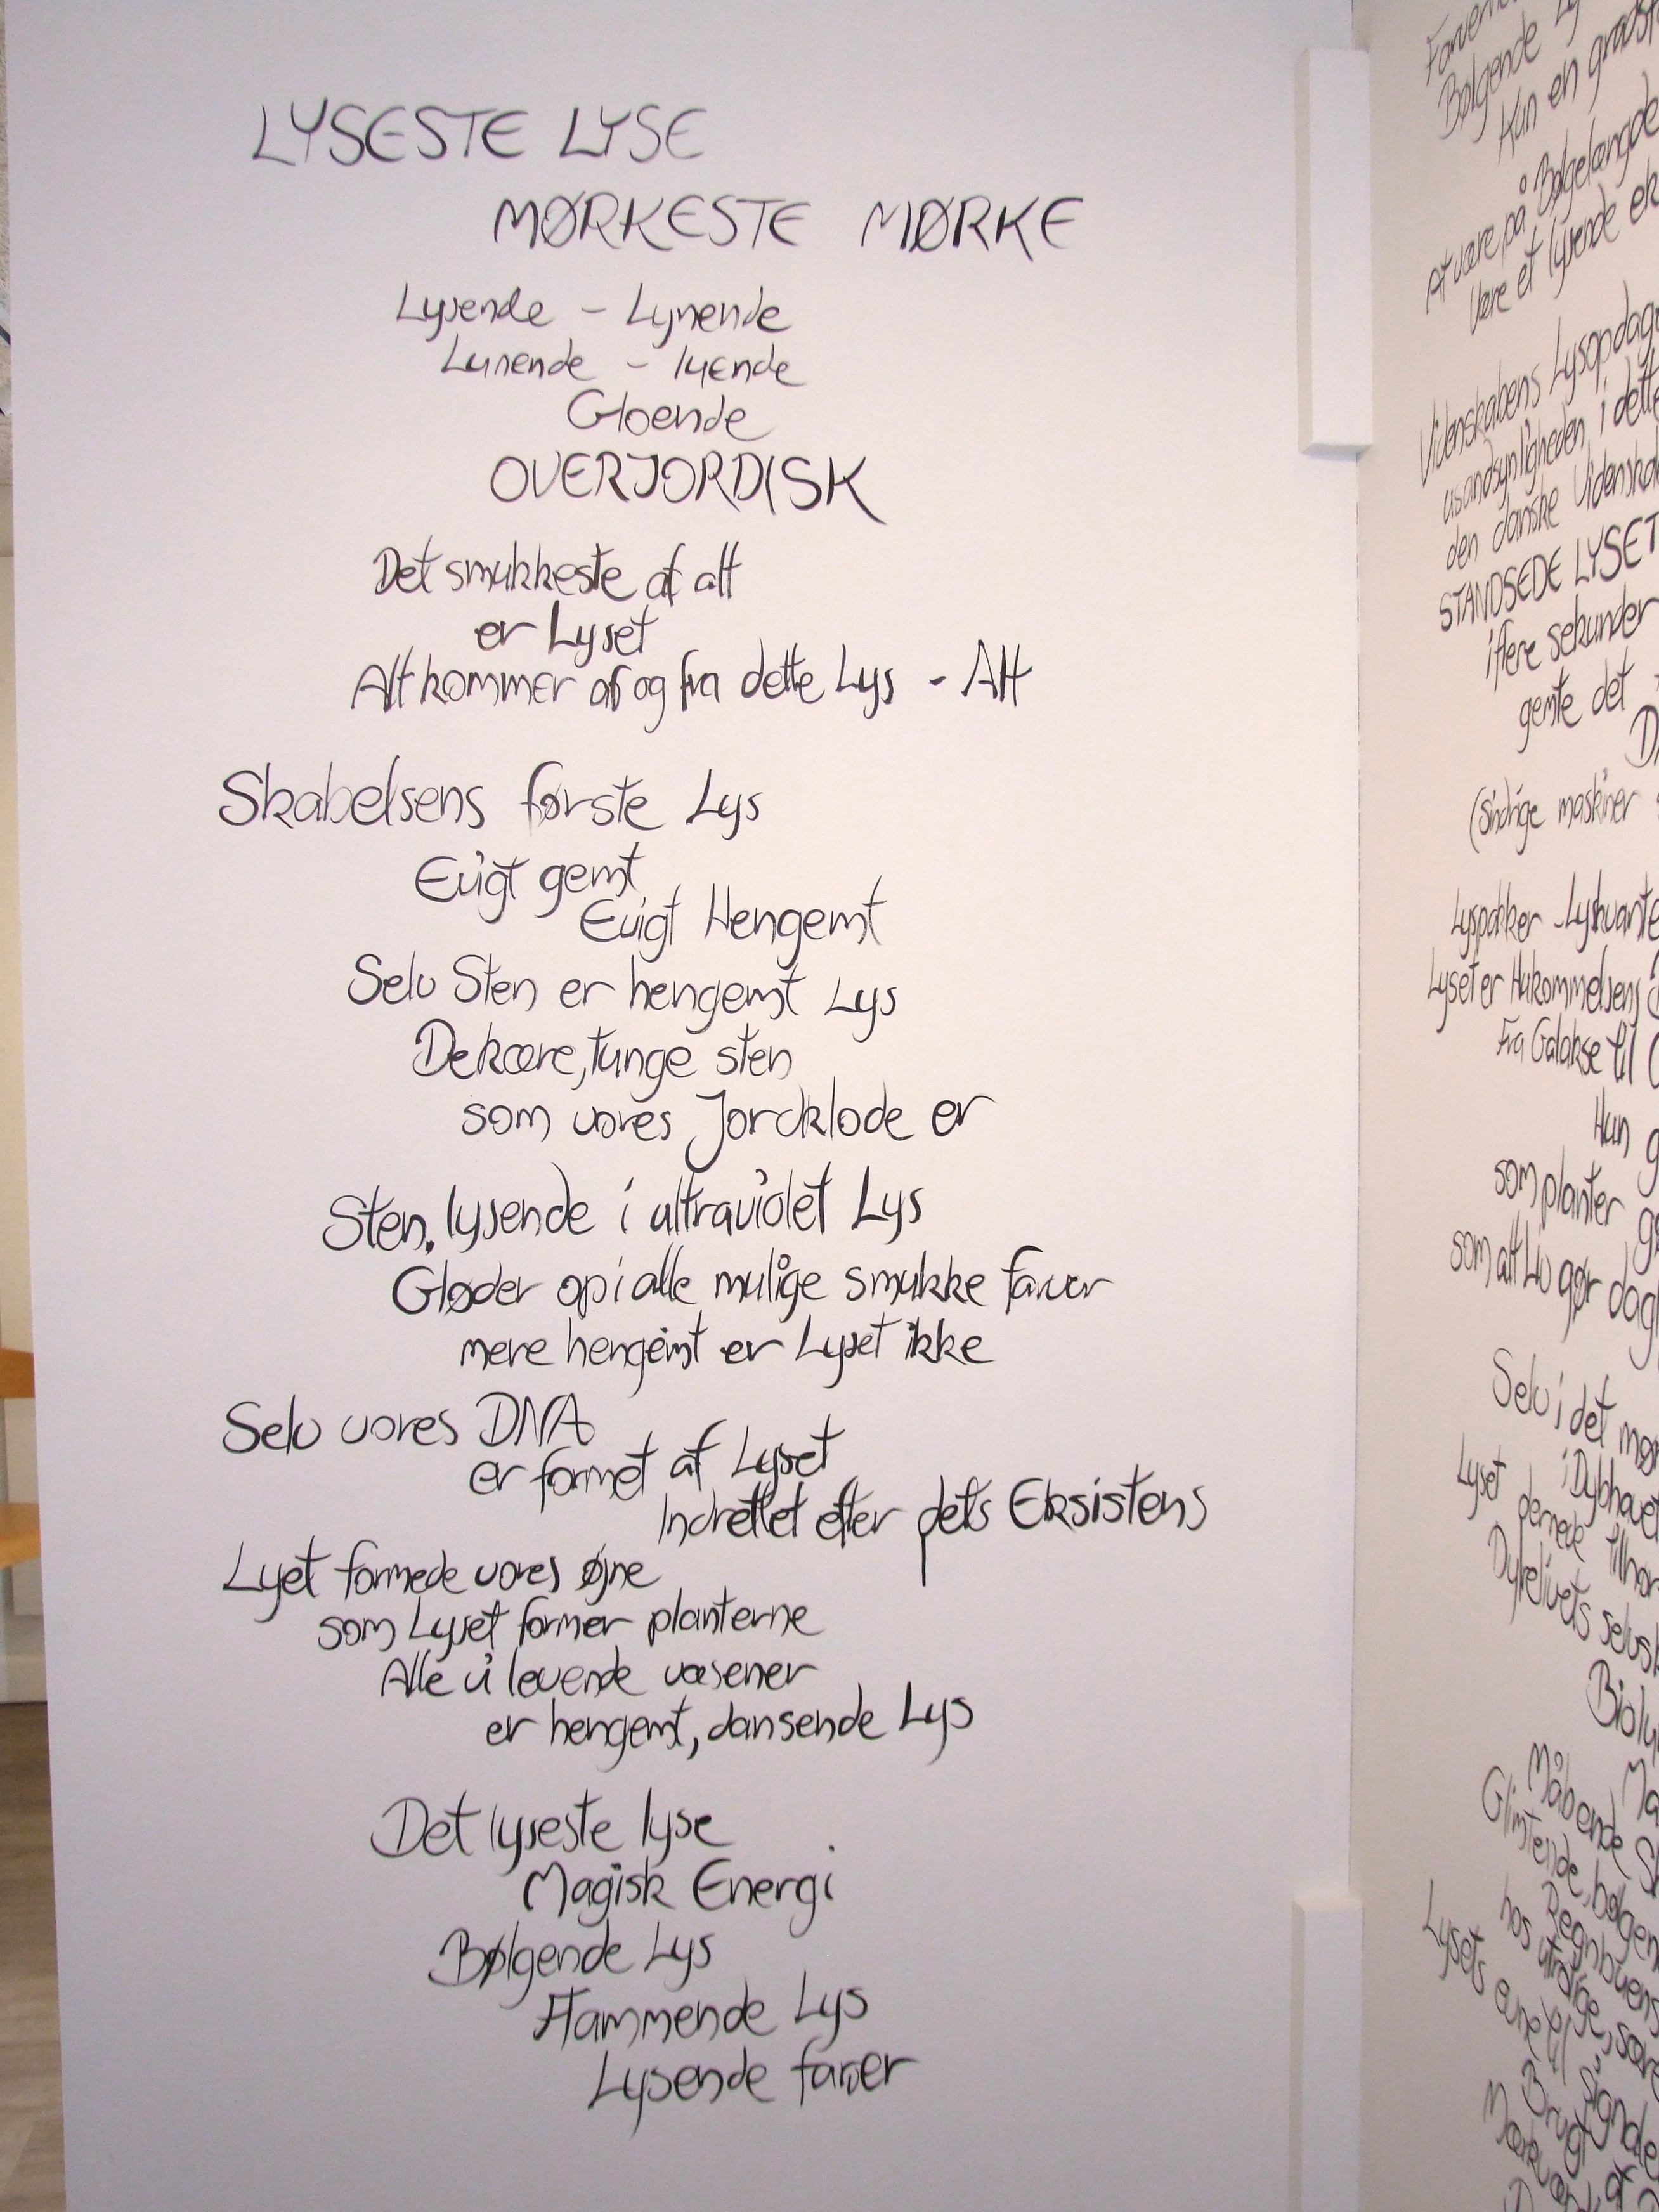 LYSESTE LYSE
MØRKESTE MØRKE
Lysende - Lynende
Lunende - lyende
Gloende
OVERJORDISK
Det smukkeste af alt
er Lyset
Alt kommer af og fra dette Lys - Alt
Skabelsens første Lys
Evigt gemt
Evigt Hengemt
Selv Sten er hengemt Lys
De kære, tunge sten
som vores Jordklode er
Sten, lysende i ultraviolet Lys
Gløder op i alle mulige smukke farver
mere hengemt er Lyset ikke
Selv vores DNA
er formet af Lyset
Indrettet efter dets Eksistens
Lyet formede vores øjne
som Lyset former planterne
Alle vi levende væsener
er hengemt, dansende Lys
Det lyseste lyse
Magisk Energi
Bølgende Lys
Flammende Lys
Lysende farver
Bølgende
Kun en
At være på Bølgelængde
Være et lysende
Videnskabens
usandsynligheden i dette
den danske
STANDSEDE LYSET
i flere sekunder
gemte det
(Sindrige maskiner
Lyspakker -
Lyset er Hukommelsens
Fra Galakse til
Hun
som planter
som alt Liv gør
Selv i det
i Dybhavet
Lyset dernede
Dyrelivets
Måbende
Glimtende,
Regnbuens
hos utrolige,
Lysets evne til
Brugt